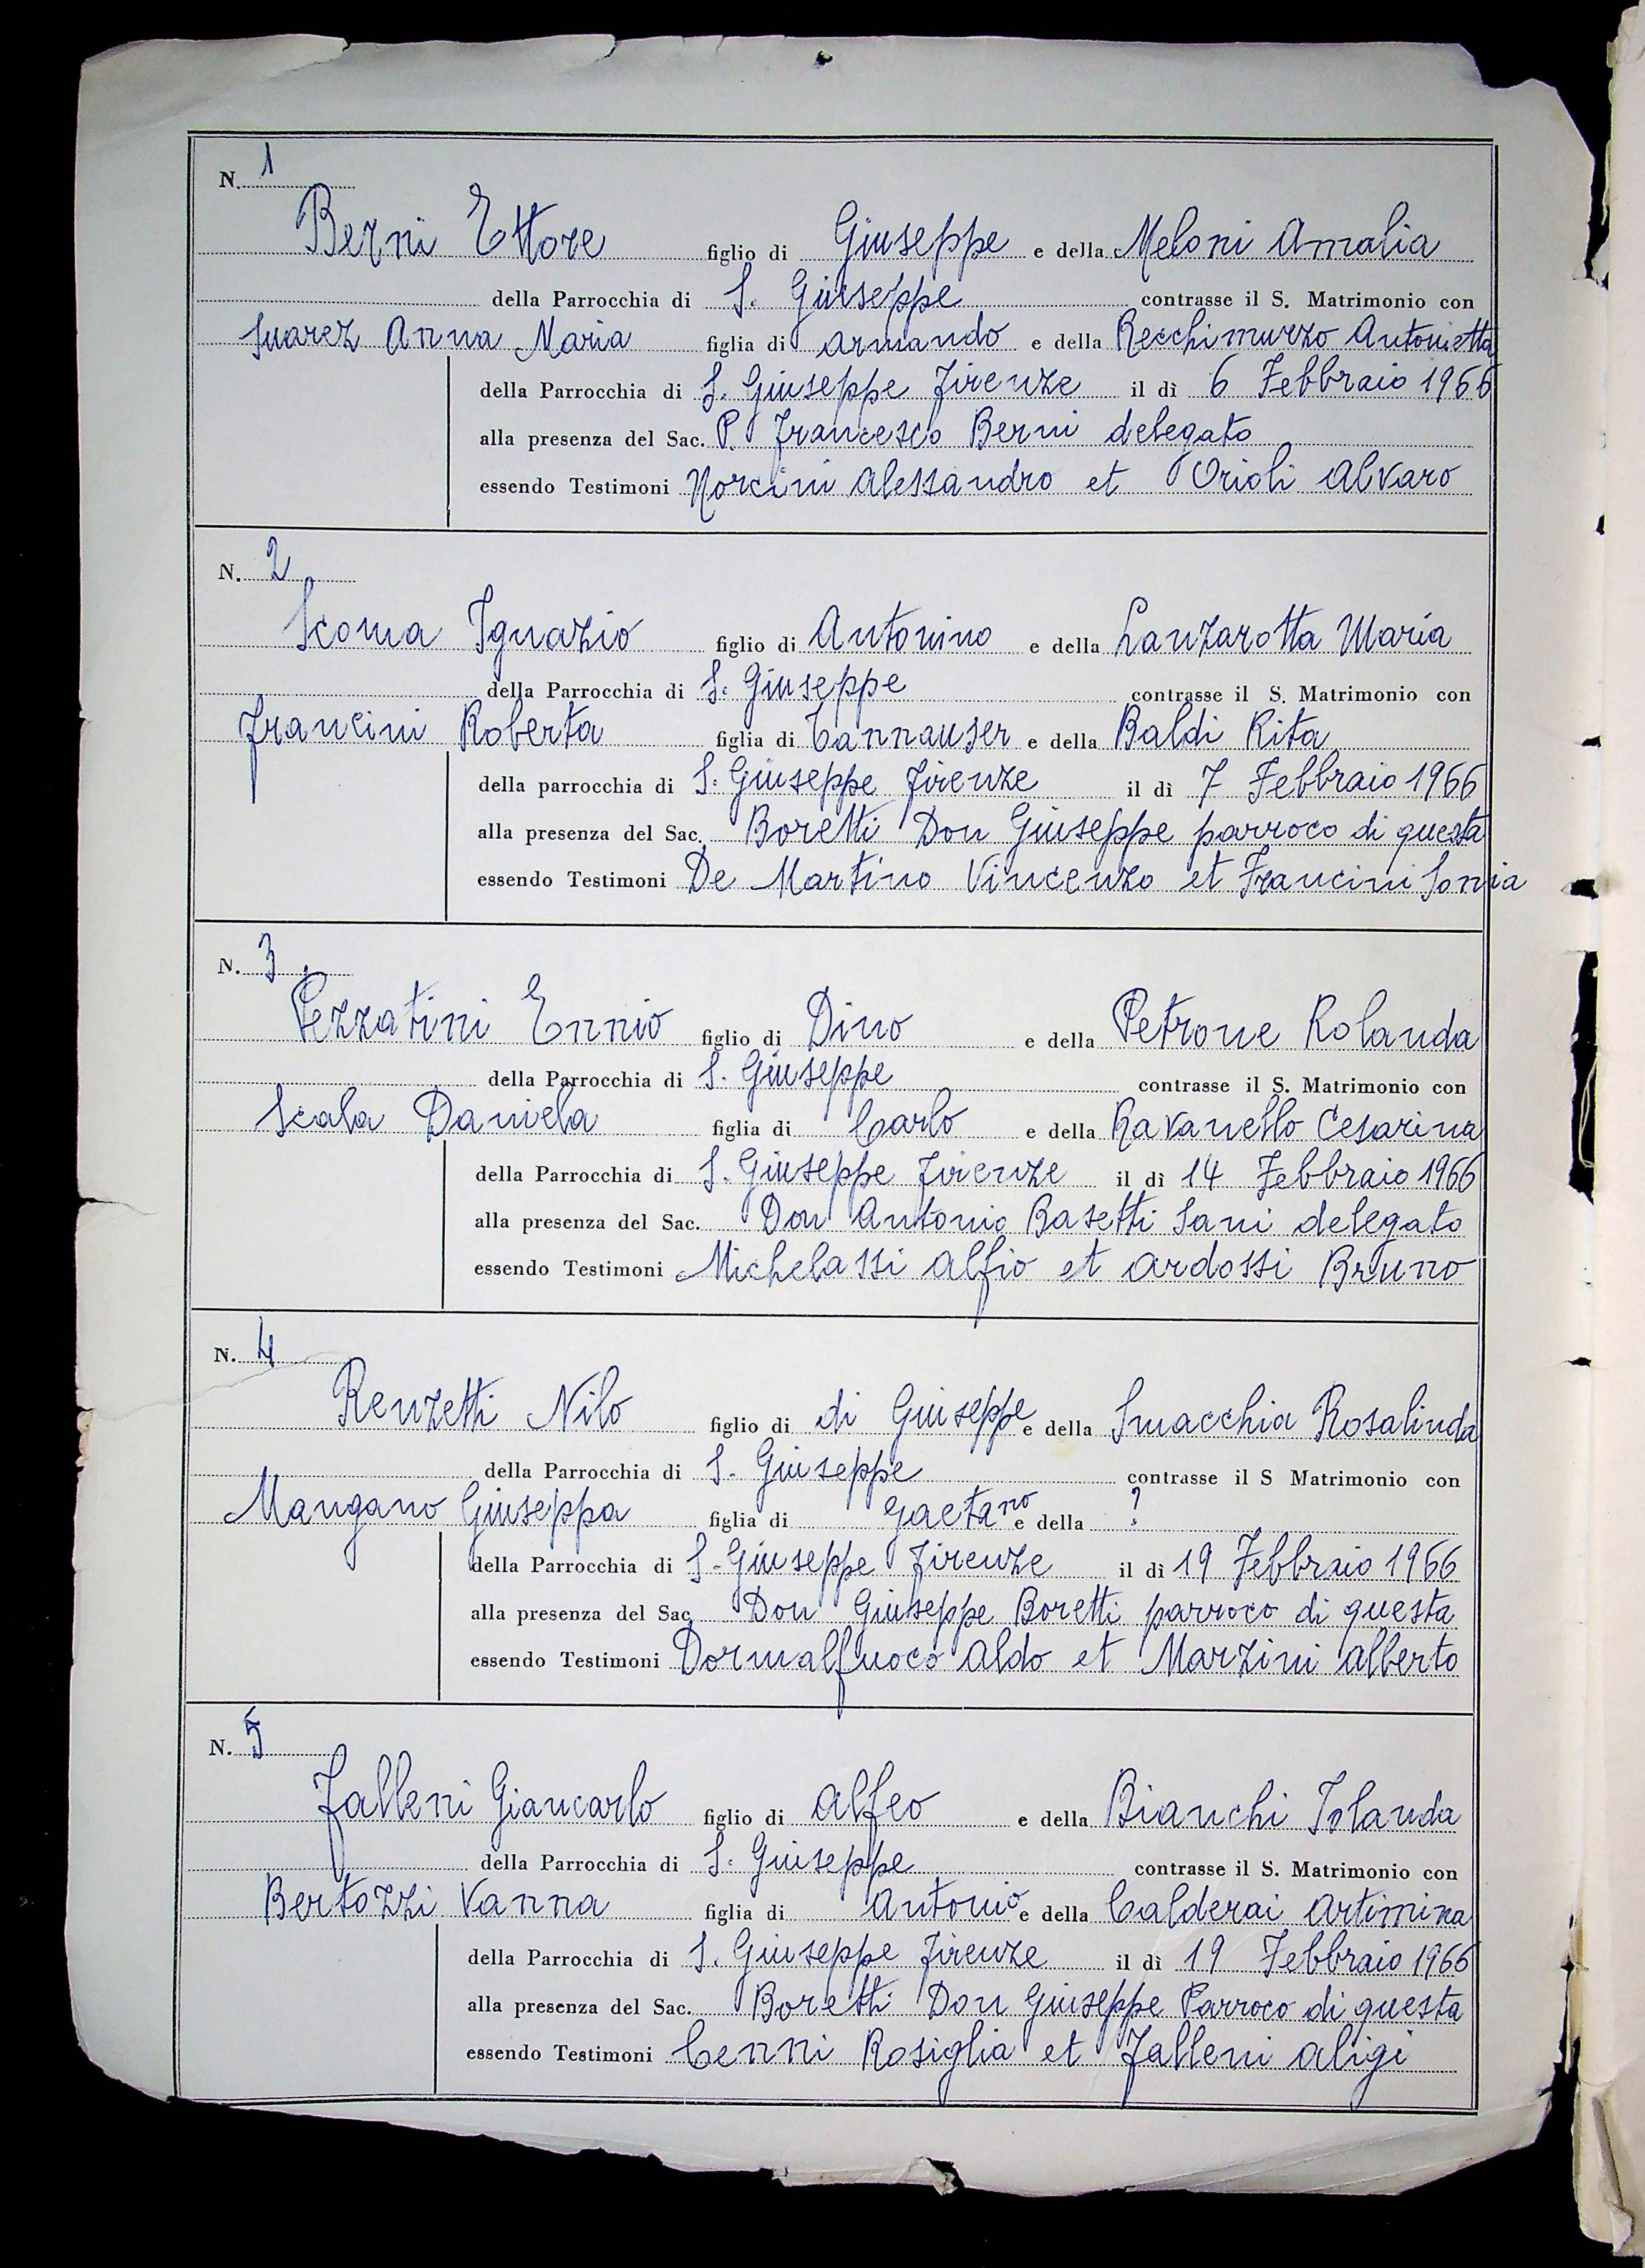 N. 1
Berni Ettore figlio di Giuseppe e della Meloni Amalia
della Parrocchia di S. Giuseppe contrasse il S. Matrimonio con
Suarez Anna Maria figlia di Armando e della Recchimurzo Antonietta
della Parrocchia di S. Giuseppe Firenze il dì 6 Febbraio 1966
alla presenza del Sac. P. Francesco Berni delegato
essendo Testimoni Norcini Alessandro et Orioli Alvaro
N. 2
Scoma Ignazio figlio di Antonino e della Lanzarotta Maria
della Parrocchia di S. Giuseppe contrasse il S. Matrimonio con
Francini Roberta figlia di Tannauser e della Baldi Rita
della parrocchia di S. Giuseppe Firenze il dì 7 Febbraio 1966
alla presenza del Sac. Boretti Don Giuseppe parroco di questa
essendo Testimoni De Martino Vincenzo et Francini Sonia
N. 3
Pezzatini Ennio figlio di Dino e della Petrone Rolanda
della Parrocchia di S. Giuseppe contrasse il S. Matrimonio con
Scala Daniela figlia di Carlo e della Ravanello Cesarina
della Parrocchia di S. Giuseppe Firenze il dì 14 Febbraio 1966
alla presenza del Sac. Don Antonio Basetti Sani delegato
essendo Testimoni Michelassi Alfio et Ardossi Bruno
N. 4
Renzetti Nilo figlio di di Giuseppe e della Smacchia Rosalinda
della Parrocchia di S. Giuseppe contrasse il S Matrimonio con
Mangano Giuseppa figlia di Gaetano e della ?
della Parrocchia di S. Giuseppe Firenze il dì 19 Febbraio 1966
alla presenza del Sac. Don Giuseppe Boretti parroco di questa
essendo Testimoni Dormalfuoco Aldo et Marzini Alberto
N. 5
Falleni Giancarlo figlio di Alfeo e della Bianchi Iolanda
della Parrocchia di S. Giuseppe contrasse il S. Matrimonio con
Bertozzi Vanna figlia di Antonio e della Calderai Artimina
della Parrocchia di S. Giuseppe Firenze il dì 19 Febbraio 1966
alla presenza del Sac. Boretti Don Giuseppe Parroco di questa
essendo Testimoni Cenni Rosiglia et Falleni Aligi